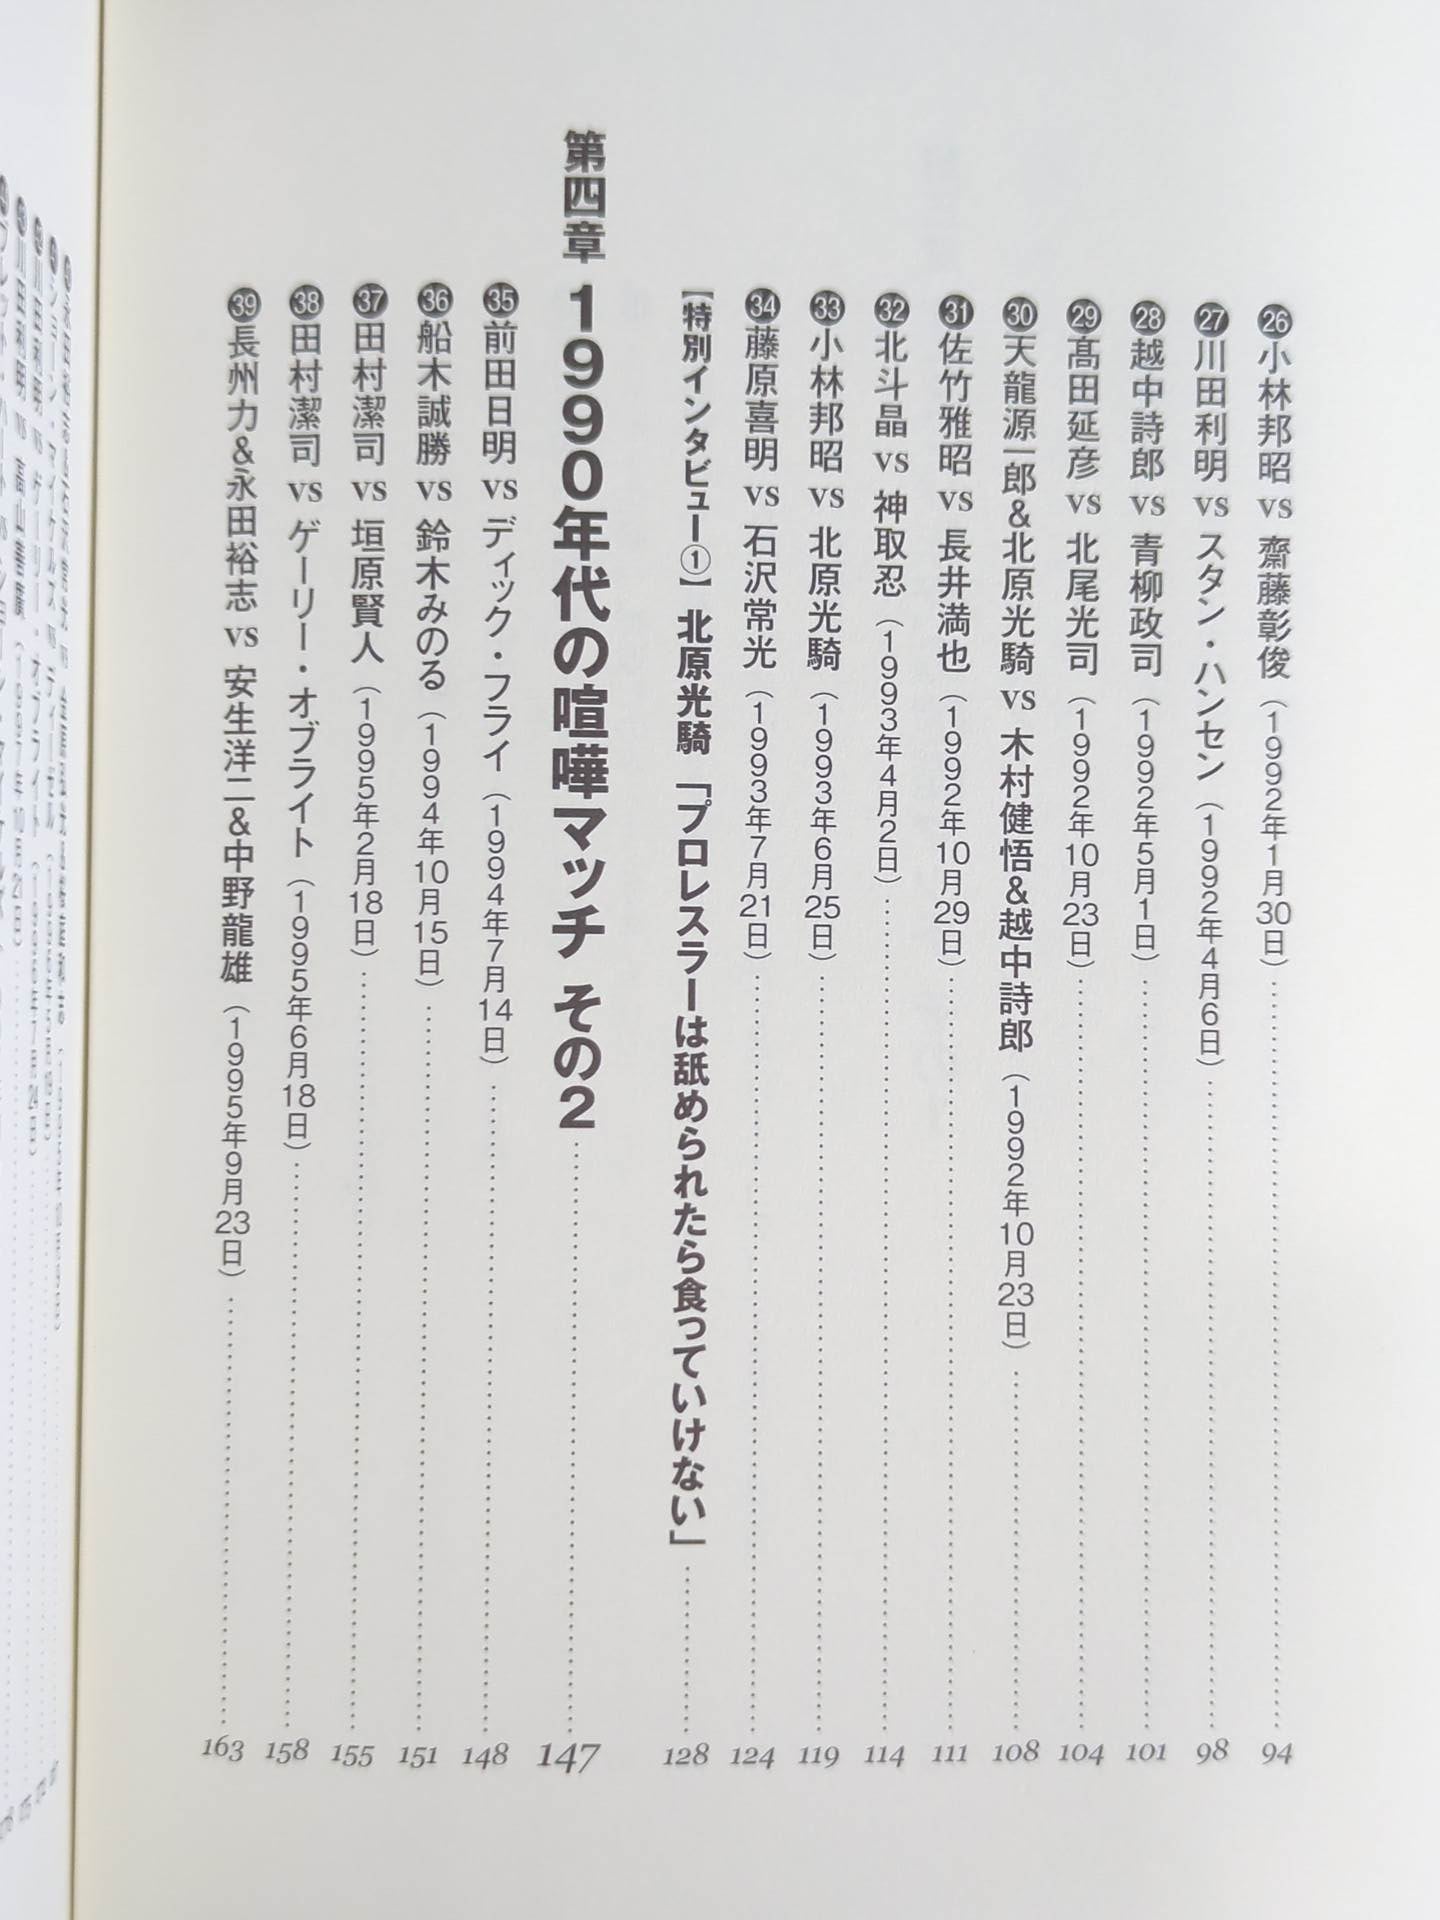 ㉖小林邦昭 vs 齋藤彰俊（1992年1月30日）…… 94
㉗川田利明 vs スタン・ハンセン（1992年4月6日）…… 98
㉘越中詩郎 vs 青柳政司（1992年5月1日）…… 101
㉙髙田延彦 vs 北尾光司（1992年10月23日）…… 104
㉚天龍源一郎&北原光騎 vs 木村健悟&越中詩郎（1992年10月23日）…… 108
㉛佐竹雅昭 vs 長井満也（1992年10月29日）…… 111
㉜北斗晶 vs 神取忍（1993年4月2日）…… 114
㉝小林邦昭 vs 北原光騎（1993年6月25日）…… 119
㉞藤原喜明 vs 石沢常光（1993年7月21日）…… 124
【特別インタビュー①】北原光騎「プロレスラーは舐められたら食っていけない」…… 128
第四章 1990年代の喧嘩マッチ その2 …… 147
㉟前田日明 vs ディック・フライ（1994年7月14日）…… 148
㊱船木誠勝 vs 鈴木みのる（1994年10月15日）…… 151
㊲田村潔司 vs 垣原賢人（1995年2月18日）…… 155
㊳田村潔司 vs ゲーリー・オブライト（1995年6月18日）…… 158
㊴長州力&永田裕志 vs 安生洋二&中野龍雄（1995年9月23日）…… 163